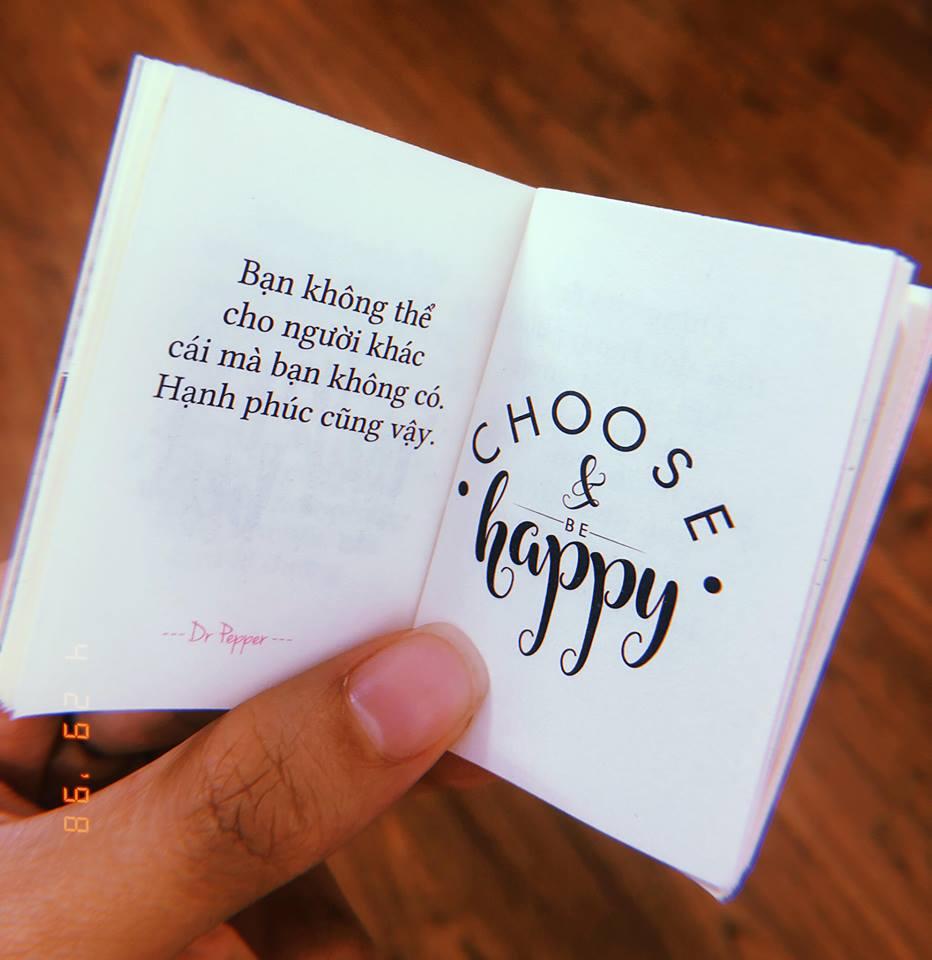 Bạn không thể
cho người khác
cái mà bạn không có.
Hạnh phúc cũng vậy.
--- Dr Pepper ---
CHOOSE
&
BE
• happy •
4 29 '98